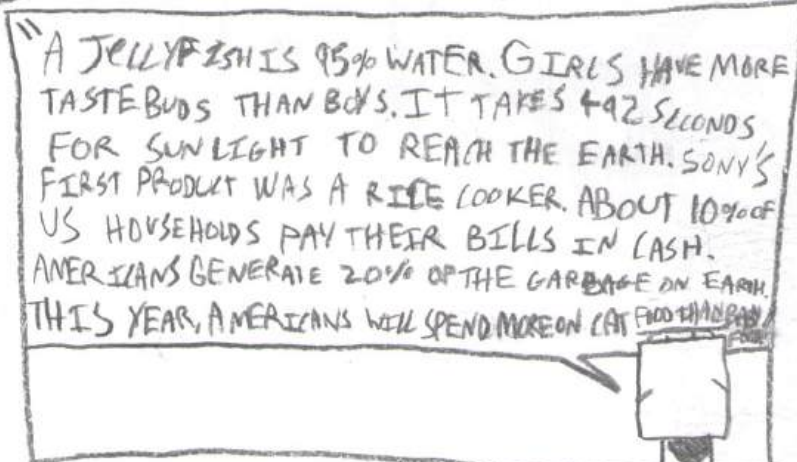 "A JELLYFISH IS 95% WATER. GIRLS HAVE MORE
TASTEBUDS THAN BOYS. IT TAKES 492 SECONDS
FOR SUNLIGHT TO REACH THE EARTH. SONY'S
FIRST PRODUCT WAS A RICE COOKER. ABOUT 10% OF
US HOUSEHOLDS PAY THEIR BILLS IN CASH.
AMERICANS GENERATE 20% OF THE GARBAGE ON EARTH.
THIS YEAR, AMERICANS WILL SPEND MORE ON CAT FOOD THAN BABY
FOOD